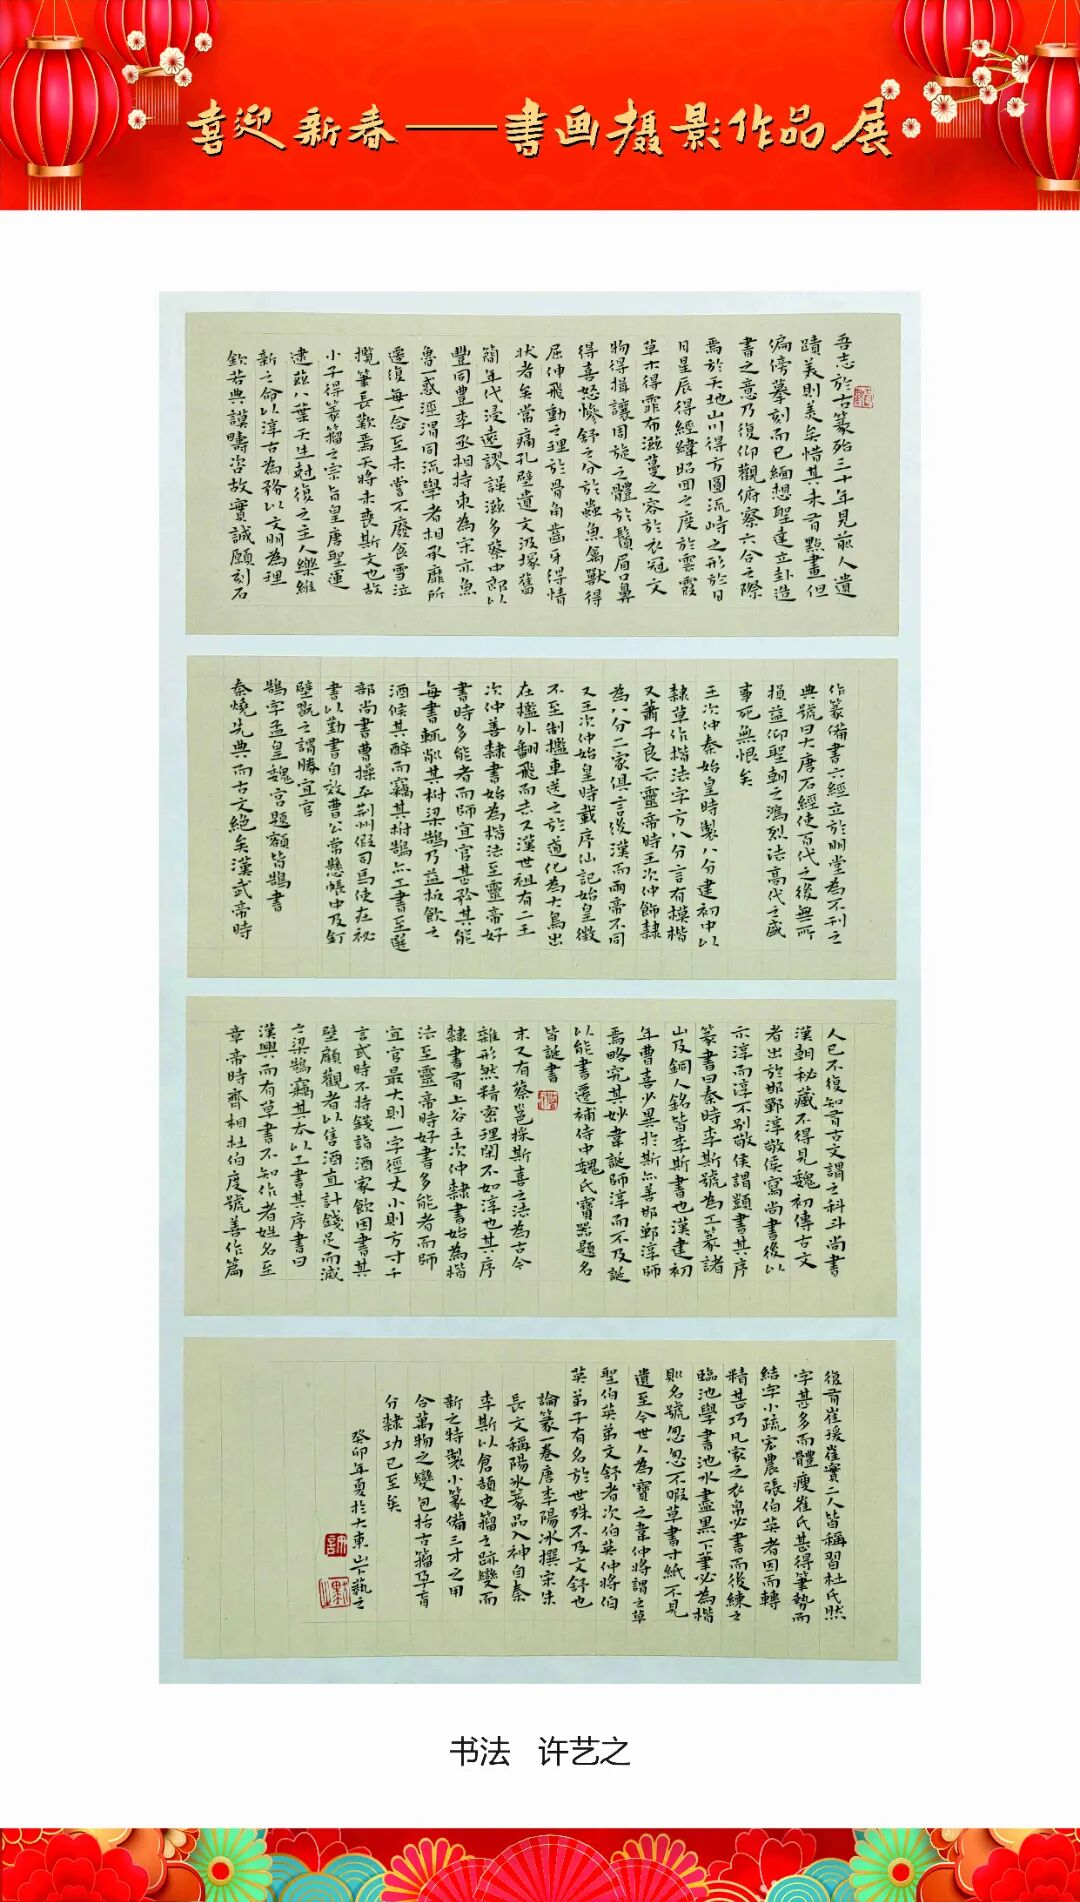 喜迎新春——书画摄影作品展
吾志於古篆殆三十年見前人遺
蹟美則美矣惜其未有點畫但
偏傍摹刻而已緬想聖達立卦造
書之意乃復仰觀俯察六合之際
焉於天地山川得方圓流峙之形於日
月星辰得經緯昭回之度於雲霞
草木得霏布滋蔓之容於衣冠文
物得揖讓周旋之體於鬚眉口鼻
得喜怒慘舒之分於蟲魚禽獸得
屈伸飛動之理於骨角齒牙得情
狀者矣常痛孔壁遺文汲塚舊
簡年代浸遠謬誤滋多蔡中郎以
豐同豐李丞相持束為宋亦魚
魯一惑涇渭同流學者相承靡所
遷復每一念至未嘗不廢食雪泣
攬筆長歎焉天將未喪斯文也故
小子得篆籀之宗旨皇唐聖運
逮茲八葉天生尅復之主人樂維
新之命以淳古為務以文明為理
欽若典謨疇咨故實誠願刻石
作篆備書六經立於明堂為不刊之
典號曰大唐石經使百代之後無所
損益仰聖朝之鴻烈法高代之盛
事死無恨矣
王次仲秦始皇時製八分建初中以
隸草作楷法字方八分言有模楷
又蕭子良云靈帝時王次仲飾隸
為八分二家俱言後漢而兩帝不同
又王次仲始皇時載序仙記始皇徵
不至制檻車送之於道化為大鳥出
在檻外翻飛而去又漢世祖有二王
次仲善隸書始為楷法至靈帝好
書時多能者而師宜官甚矜其能
每書輒削其柎梁鵠乃益板飲之
酒候其醉而竊其柎鵠亦工書至選
部尚書曹操平荆州假司馬使在祕
書以勤書自效曹公常懸帳中及釘
壁翫之謂勝宜官
鵠字孟皇魏宫題額皆鵠書
秦燒先典而古文絶矣漢武帝時
人已不復知有古文謂之科斗尚書
漢朝秘藏不得見魏初傳古文
者出於邯鄲淳敬侯寫尚書後以
示淳而淳不别敬侯謂題書其序
篆書曰秦時李斯號為工篆諸
山及銅人銘皆李斯書也漢建初
年曹喜少異於斯亦善邯鄲淳師
焉略究其妙韋誕師淳而不及誕
以能書遷補侍中魏氏寶器題名
皆誕書
末又有蔡邕採斯喜之法為古今
雜形然精密理閑不如淳也其序
隸書有上谷王次仲隸書始為楷
法至靈帝時好書多能者而師
宜官最大則一字徑丈小則方寸千
言或時不持錢詣酒家飲因書其
壁顧觀者以售酒直計錢足而滅
之梁鵠竊其本以工書其序書曰
漢興而有草書不知作者姓名至
章帝時齊相杜伯度號善作篇
後有崔瑗崔寔二人皆稱習杜氏然
字甚多而體瘦崔氏甚得筆勢而
結字小疏宏農張伯英者因而轉
精甚巧凡家之衣帛必書而後練之
臨池學書池水盡黑下筆必為楷
則名號忽忽不暇草書寸紙不見
遺至今世人為寶之韋仲將謂之草
聖伯英弟文舒者次伯英仲將伯
英弟子有名於世殊不及文舒也
論篆一卷唐李陽冰撰宋朱
長文稱陽冰篆品入神自秦
李斯以倉頡史籀之跡變而
新之特製小篆備三才之用
合萬物之變包括古籀孕育
分隸功已至矣
癸卯年夏於大東山下藝之
书法 许艺之